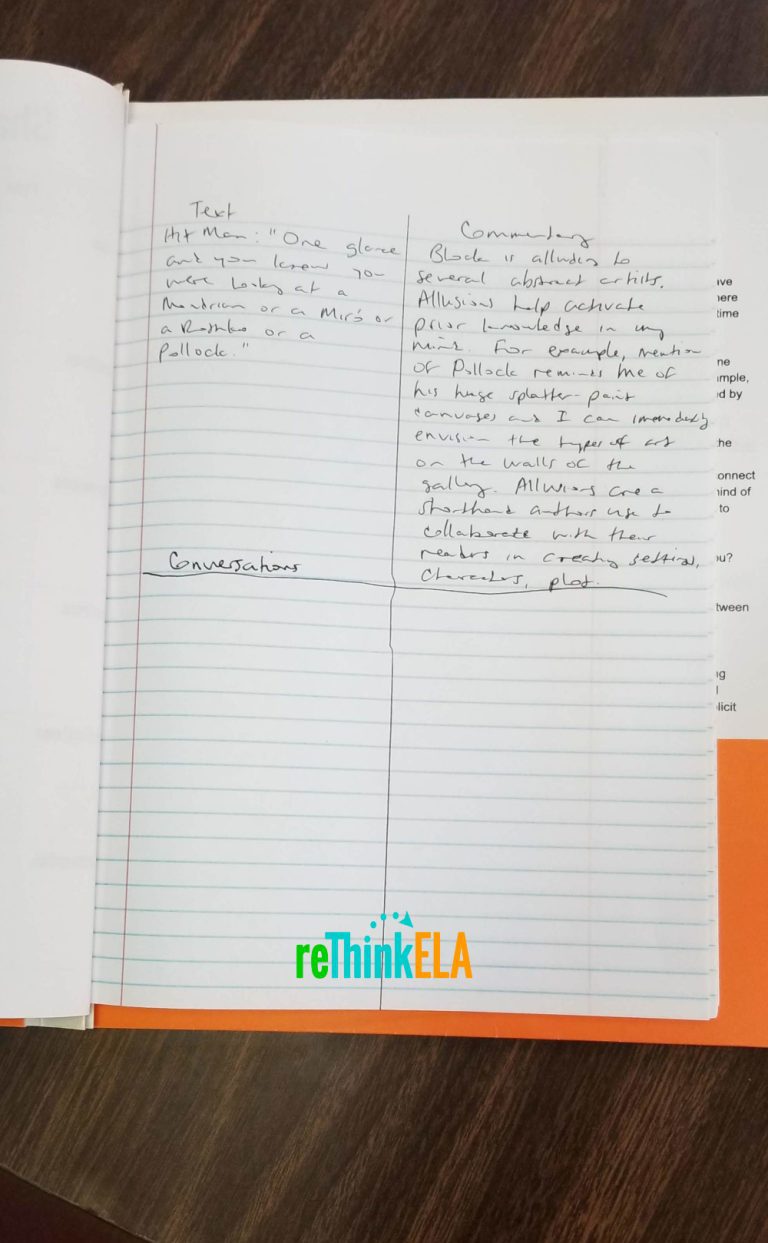 Text
Hit Man: "One glance
and you knew you
were looking at a
Mondrian or a Miró or
a Rothko or a
Pollock."
Commentary
Block is alluding to
several abstract artists.
Allusions help activate
prior knowledge in my
mind. For example, mention
of Pollock reminds me of
his huge splatter-paint
canvases and I can immediately
envision the types of art
on the walls of the
gallery. Allusions are a
shorthand authors use to
collaborate with their
readers in creating setting,
characters, plot.
Conversations
ive
here
time
ne
imple,
d by
he
onnect
ind of
to
ou?
tween
ng
l
licit
reThinkELA